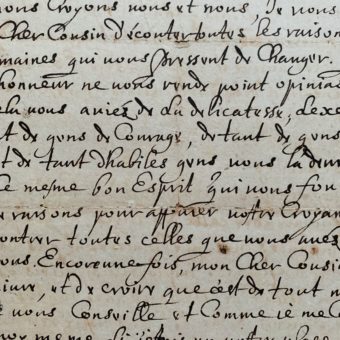 nous Croyons vous et nous, Je vous
Cher Cousin d'écouter toutes les raisons
maines qui vous Pressent de Changer.
honneur ne vous rende point opinia
ela vous aviés de la delicatesse, Lexe
t de gens de Courage, de tant de gens
et de tant dhabiles gens vous la doiv
Le meme bon Esprit qui vous fou
e raisons pour appuier votre Croyan
ontrer toutes celles que vous aués
ous. Encore une fois, mon Cher Cousi
et de croire que c'est de tout m
e vous Conseille et Comme ie me C
meme